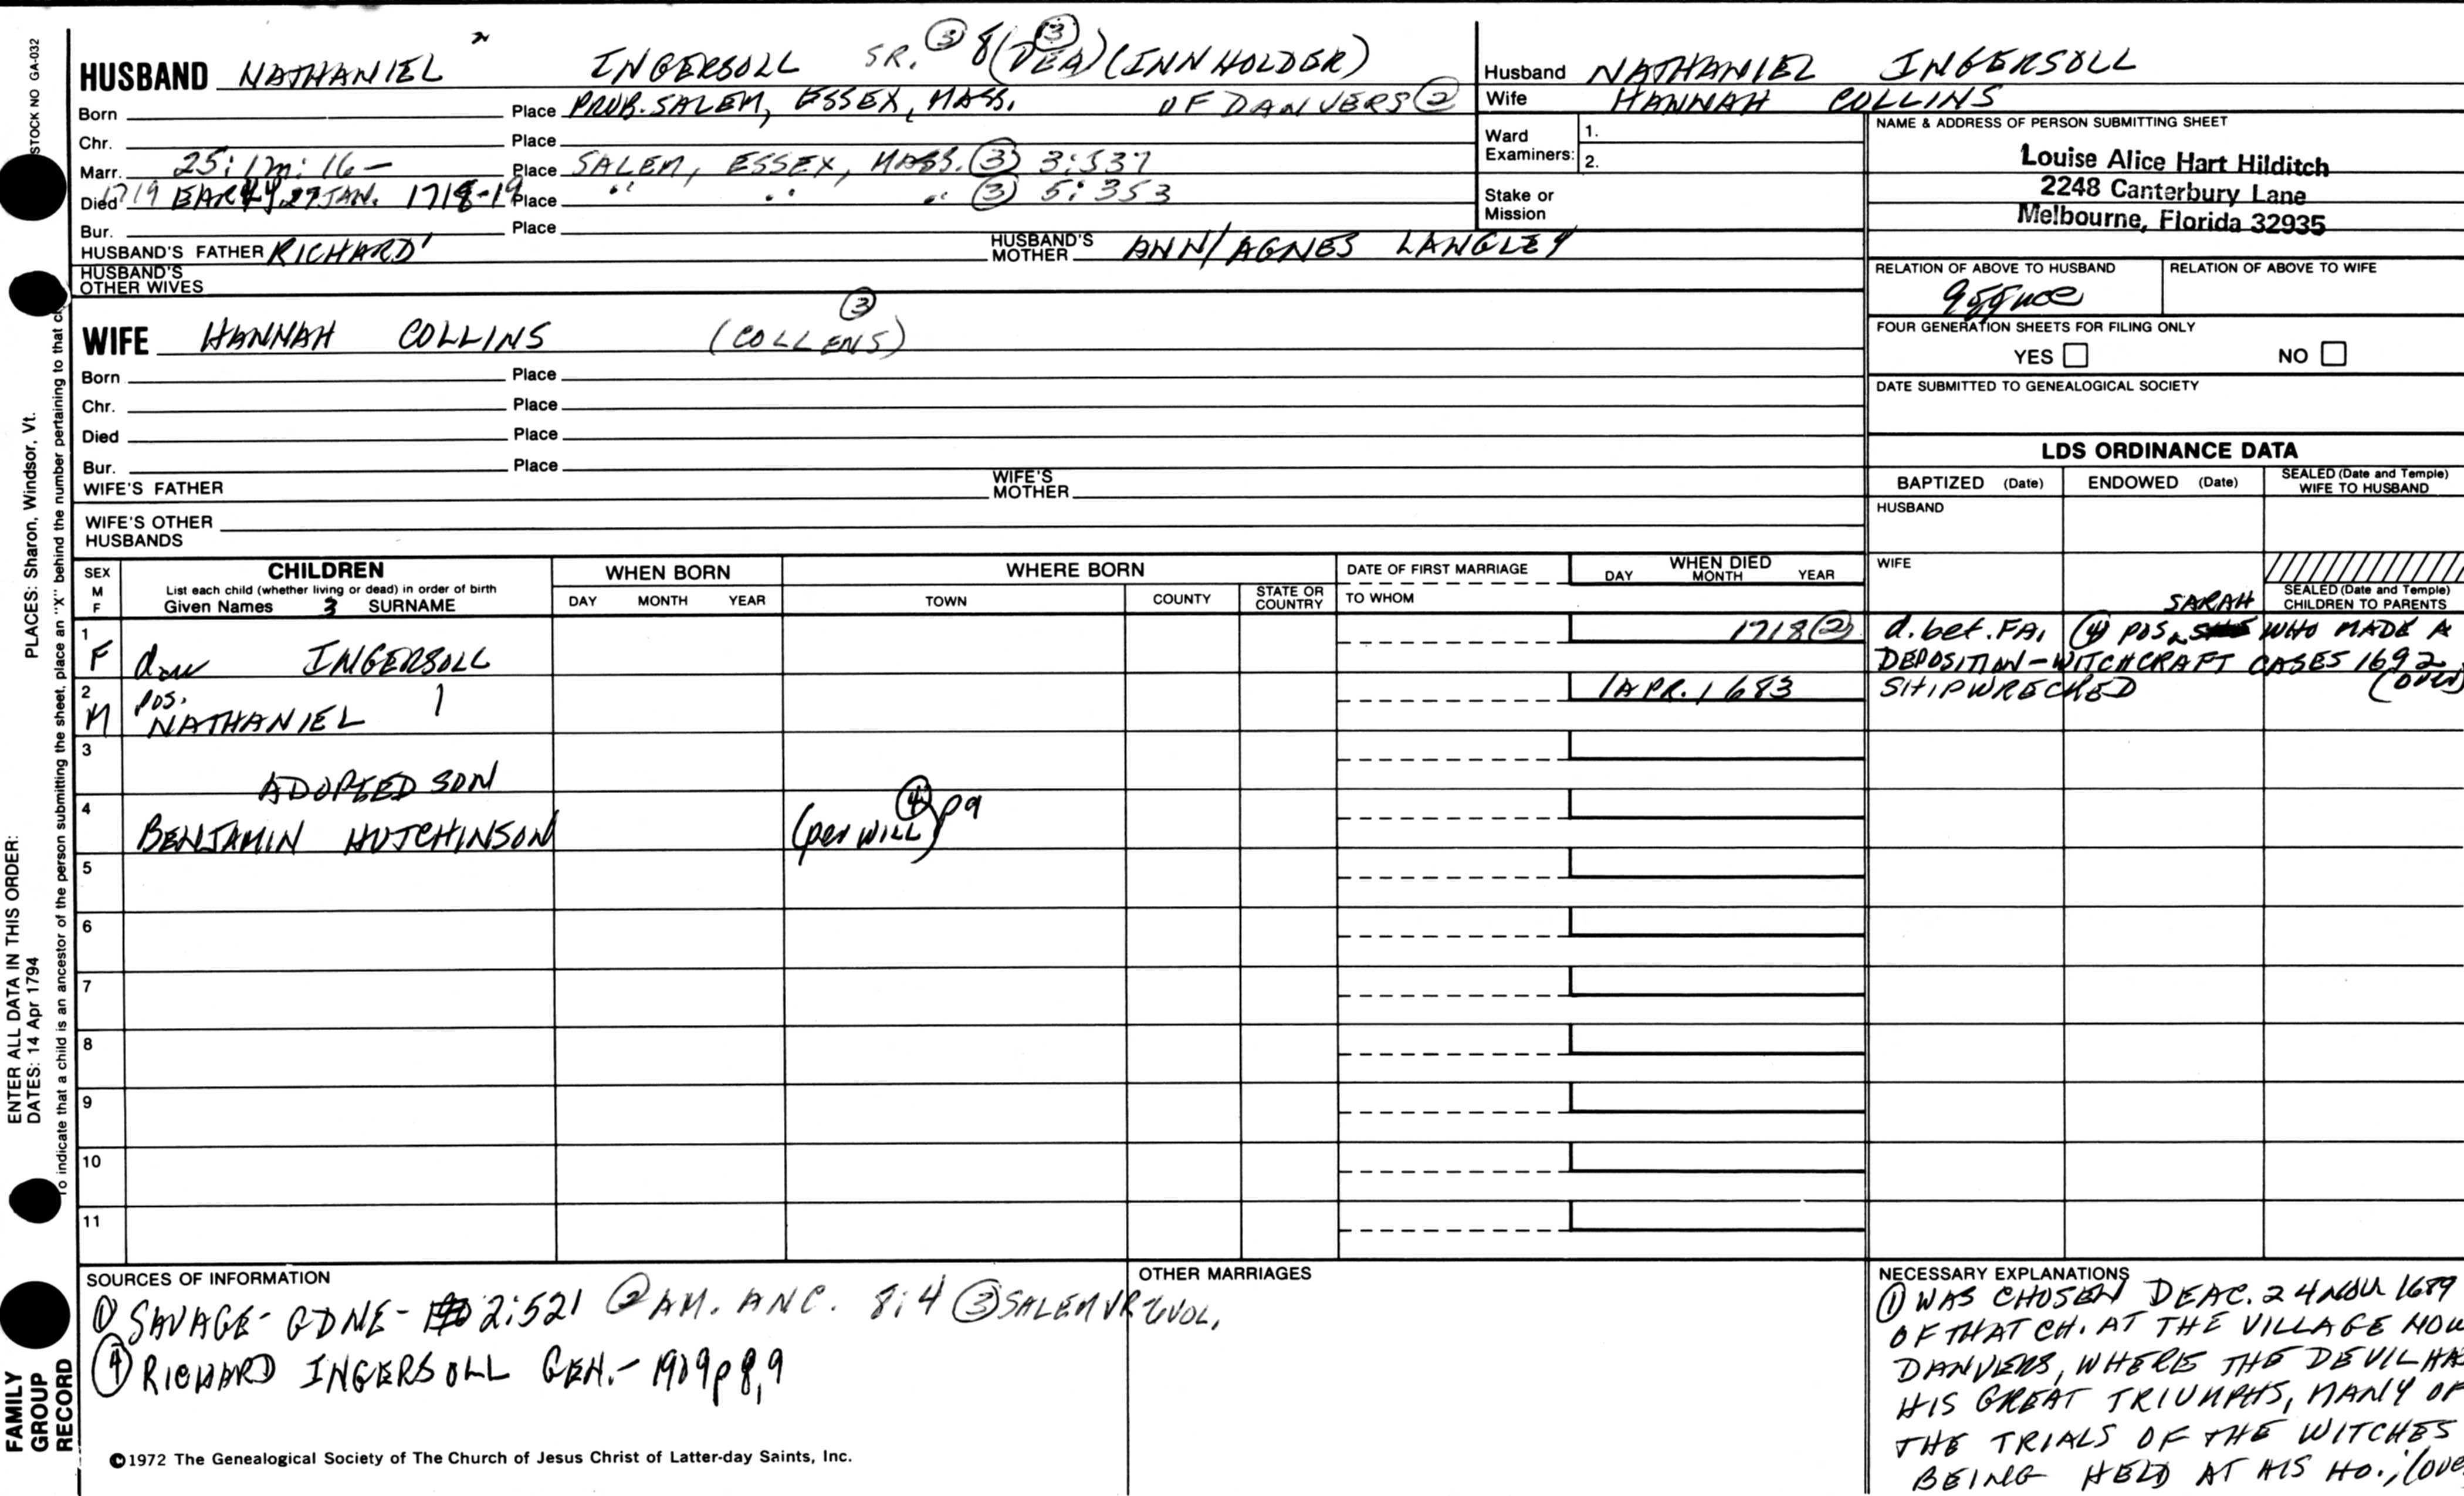 STOCK NO GA-032
HUSBAND NATHANIEL 2 INGERSOLL SR. ③ 8 (DEA) ③ (INNHOLDER)
Born Place PROB. SALEM, ESSEX, MASS. OF DANVERS ②
Chr. Place
Marr. 25: 1m: 16- Place SALEM, ESSEX, MASS. ③ 3:537
Died 1719 EARLY, 27 JAN. 1718-19 Place " " " ③ 5:353
Bur. Place
HUSBAND'S FATHER RICHARD' HUSBAND'S MOTHER ANN/AGNES LANGLEY
HUSBAND'S OTHER WIVES
WIFE HANNAH COLLINS (COLLENS) ③
Born Place
Chr. Place
Died Place
Bur. Place
WIFE'S FATHER WIFE'S MOTHER
WIFE'S OTHER HUSBANDS
Husband NATHANIEL INGERSOLL
Wife HANNAH COLLINS
Ward Examiners: 1.
2.
Stake or Mission
NAME & ADDRESS OF PERSON SUBMITTING SHEET
Louise Alice Hart Hilditch
2248 Canterbury Lane
Melbourne, Florida 32935
RELATION OF ABOVE TO HUSBAND RELATION OF ABOVE TO WIFE
FOUR GENERATION SHEETS FOR FILING ONLY
YES NO
DATE SUBMITTED TO GENEALOGICAL SOCIETY
LDS ORDINANCE DATA
BAPTIZED (Date) ENDOWED (Date) SEALED (Date and Temple) WIFE TO HUSBAND
HUSBAND
WIFE
SEALED (Date and Temple) CHILDREN TO PARENTS
SEX M F
CHILDREN
List each child (whether living or dead) in order of birth
Given Names 3 SURNAME
WHEN BORN
DAY MONTH YEAR
WHERE BORN
TOWN COUNTY STATE OR COUNTRY
DATE OF FIRST MARRIAGE
TO WHOM
WHEN DIED
DAY MONTH YEAR
SARAH
1 F dau INGERSOLL 1718 ② d. bet. FA, ④ POS. WHO MADE A
DEPOSITION-WITCHCRAFT CASES 1692
(over)
2 M pos. NATHANIEL 1 APR. 1683 SHIPWRECKED
3
ADOPTED SON
4 BENJAMIN HUTCHINSON (per WILL) ④ p9
5
6
7
8
9
10
11
SOURCES OF INFORMATION
① SAVAGE- GDNE- 2:521 ② AM. ANC. 8:4 ③ SALEM VR 6 VOL,
④ RICHARD INGERSOLL GEN.- 1909 p 8,9
OTHER MARRIAGES
NECESSARY EXPLANATIONS
① WAS CHOSEN DEAC. 24 NOV 1689
OF THAT CH. AT THE VILLAGE NOW
DANVERS, WHERE THE DEVIL HA
HIS GREAT TRIUMPHS, MANY OF
THE TRIALS OF THE WITCHES
BEING HELD AT HIS HO.; (OVE
©1972 The Genealogical Society of The Church of Jesus Christ of Latter-day Saints, Inc.
FAMILY GROUP RECORD
ENTER ALL DATA IN THIS ORDER:
DATES: 14 Apr 1794
PLACES: Sharon, Windsor, Vt.
To indicate that a child is an ancestor of the person submitting the sheet, place an "X" behind the number pertaining to that